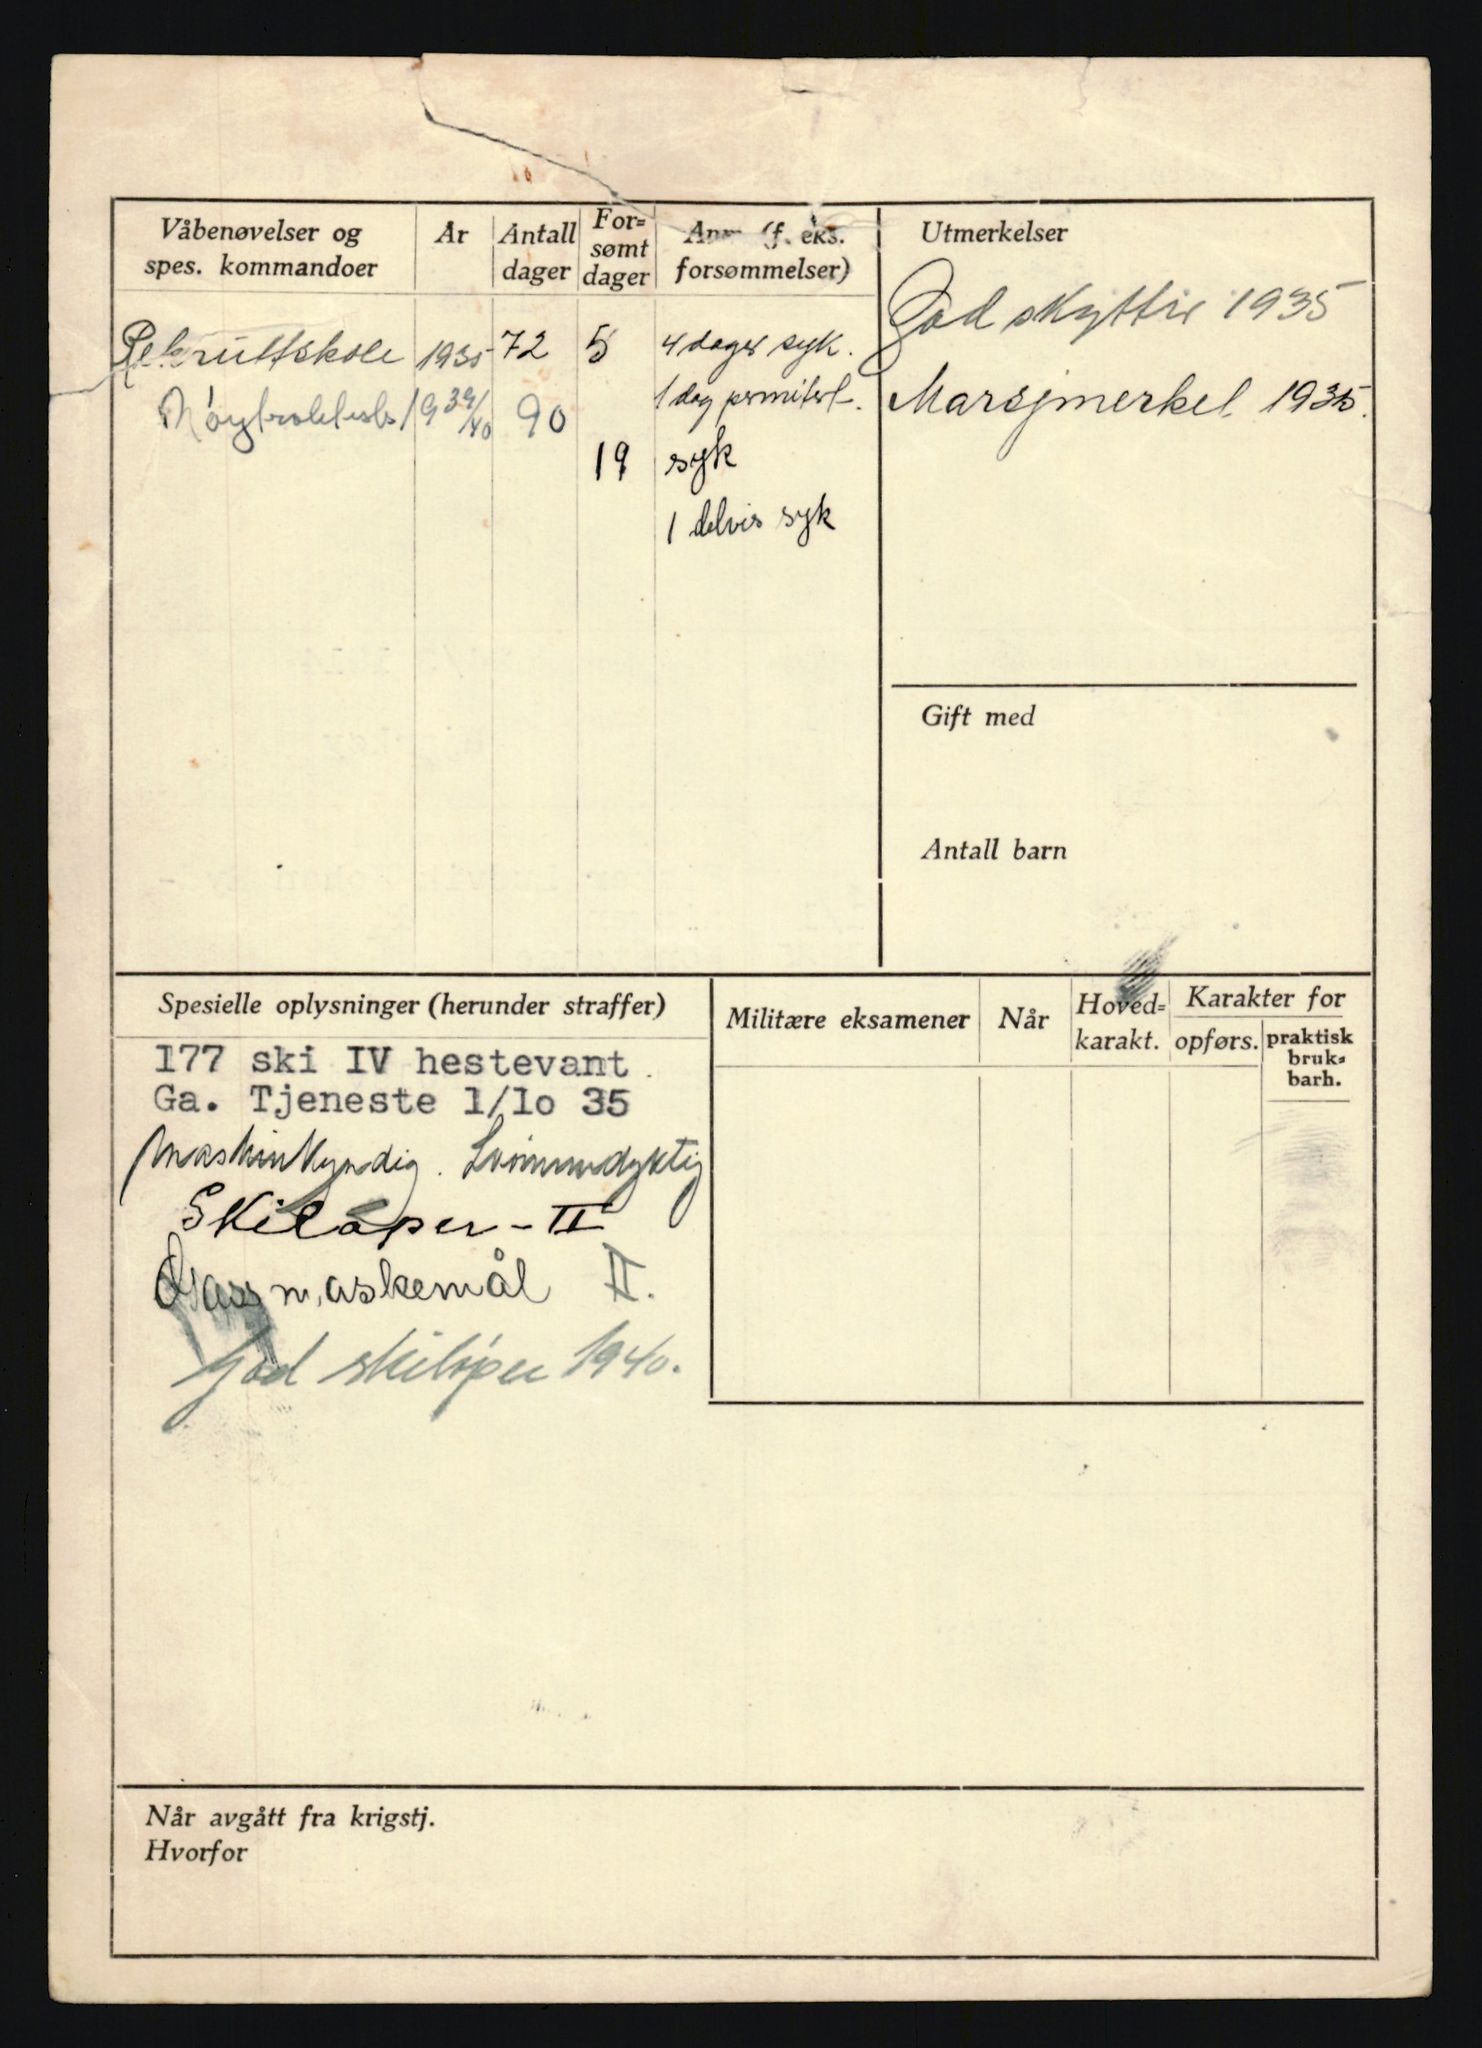 Våbenøvelser og
spes. kommandoer
År
Antall
dager
For=
sømt
dager
Anm. (f. eks.
forsømmelser)
Rekruttskole 1935 72 5 4 dager syk.
1 dag permitert.
Nøytralitetsv. 1939/40 90
19 syk
1 delvis syk
Utmerkelser
God skytter 1935
Marsjmerket 1935.
Gift med
Antall barn
Spesielle oplysninger (herunder straffer)
177 ski IV hestevant.
Ga. Tjeneste 1/10 35
Maskinkyndig. Svømmedyktig
Skiløper - II
Gassmaskemål II.
God skiløper 1940.
Militære eksamener
Når
Hoved=
karakt.
Karakter for
opførs.
praktisk
bruk=
barh.
Når avgått fra krigstj.
Hvorfor